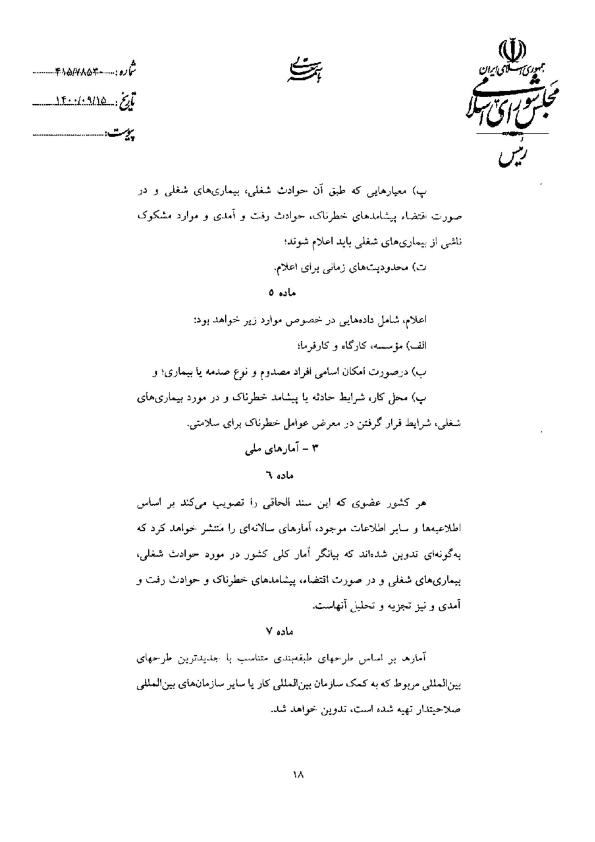 جمهوری اسلامی ایران
مجلس شورای اسلامی
رئیس
باسمه تعالی
شماره: ۴۱۵/۷۸۵۳۰
تاریخ: ۱۴۰۰/۰۹/۱۵
پیوست:
پ) معیارهایی که طبق آن حوادث شغلی، بیماری‌های شغلی و در
صورت اقتضاء پیشامدهای خطرناک، حوادث رفت و آمدی و موارد مشکوک
ناشی از بیماری‌های شغلی باید اعلام شوند؛
ت) محدودیت‌های زمانی برای اعلام.
ماده ۵
اعلام، شامل داده‌هایی در خصوص موارد زیر خواهد بود:
الف) مؤسسه، کارگاه و کارفرما؛
ب) درصورت امکان اسامی افراد مصدوم و نوع صدمه یا بیماری؛ و
پ) محل کار، شرایط حادثه یا پیشامد خطرناک و در مورد بیماری‌های
شغلی، شرایط قرار گرفتن در معرض عوامل خطرناک برای سلامتی.
۳ - آمارهای ملی
ماده ۶
هر کشور عضوی که این سند الحاقی را تصویب می‌کند بر اساس
اطلاعیه‌ها و سایر اطلاعات موجود، آمارهای سالانه‌ای را منتشر خواهد کرد که
به‌گونه‌ای تدوین شده‌اند که بیانگر آمار کلی کشور در مورد حوادث شغلی،
بیماری‌های شغلی و در صورت اقتضاء، پیشامدهای خطرناک و حوادث رفت و
آمدی و نیز تجزیه و تحلیل آنهاست.
ماده ۷
آمارها بر اساس طرحهای طبقه‌بندی متناسب با جدیدترین طرحهای
بین‌المللی مربوط که به کمک سازمان بین‌المللی کار یا سایر سازمان‌های بین‌المللی
صلاحیتدار تهیه شده است، تدوین خواهد شد.
۱۸